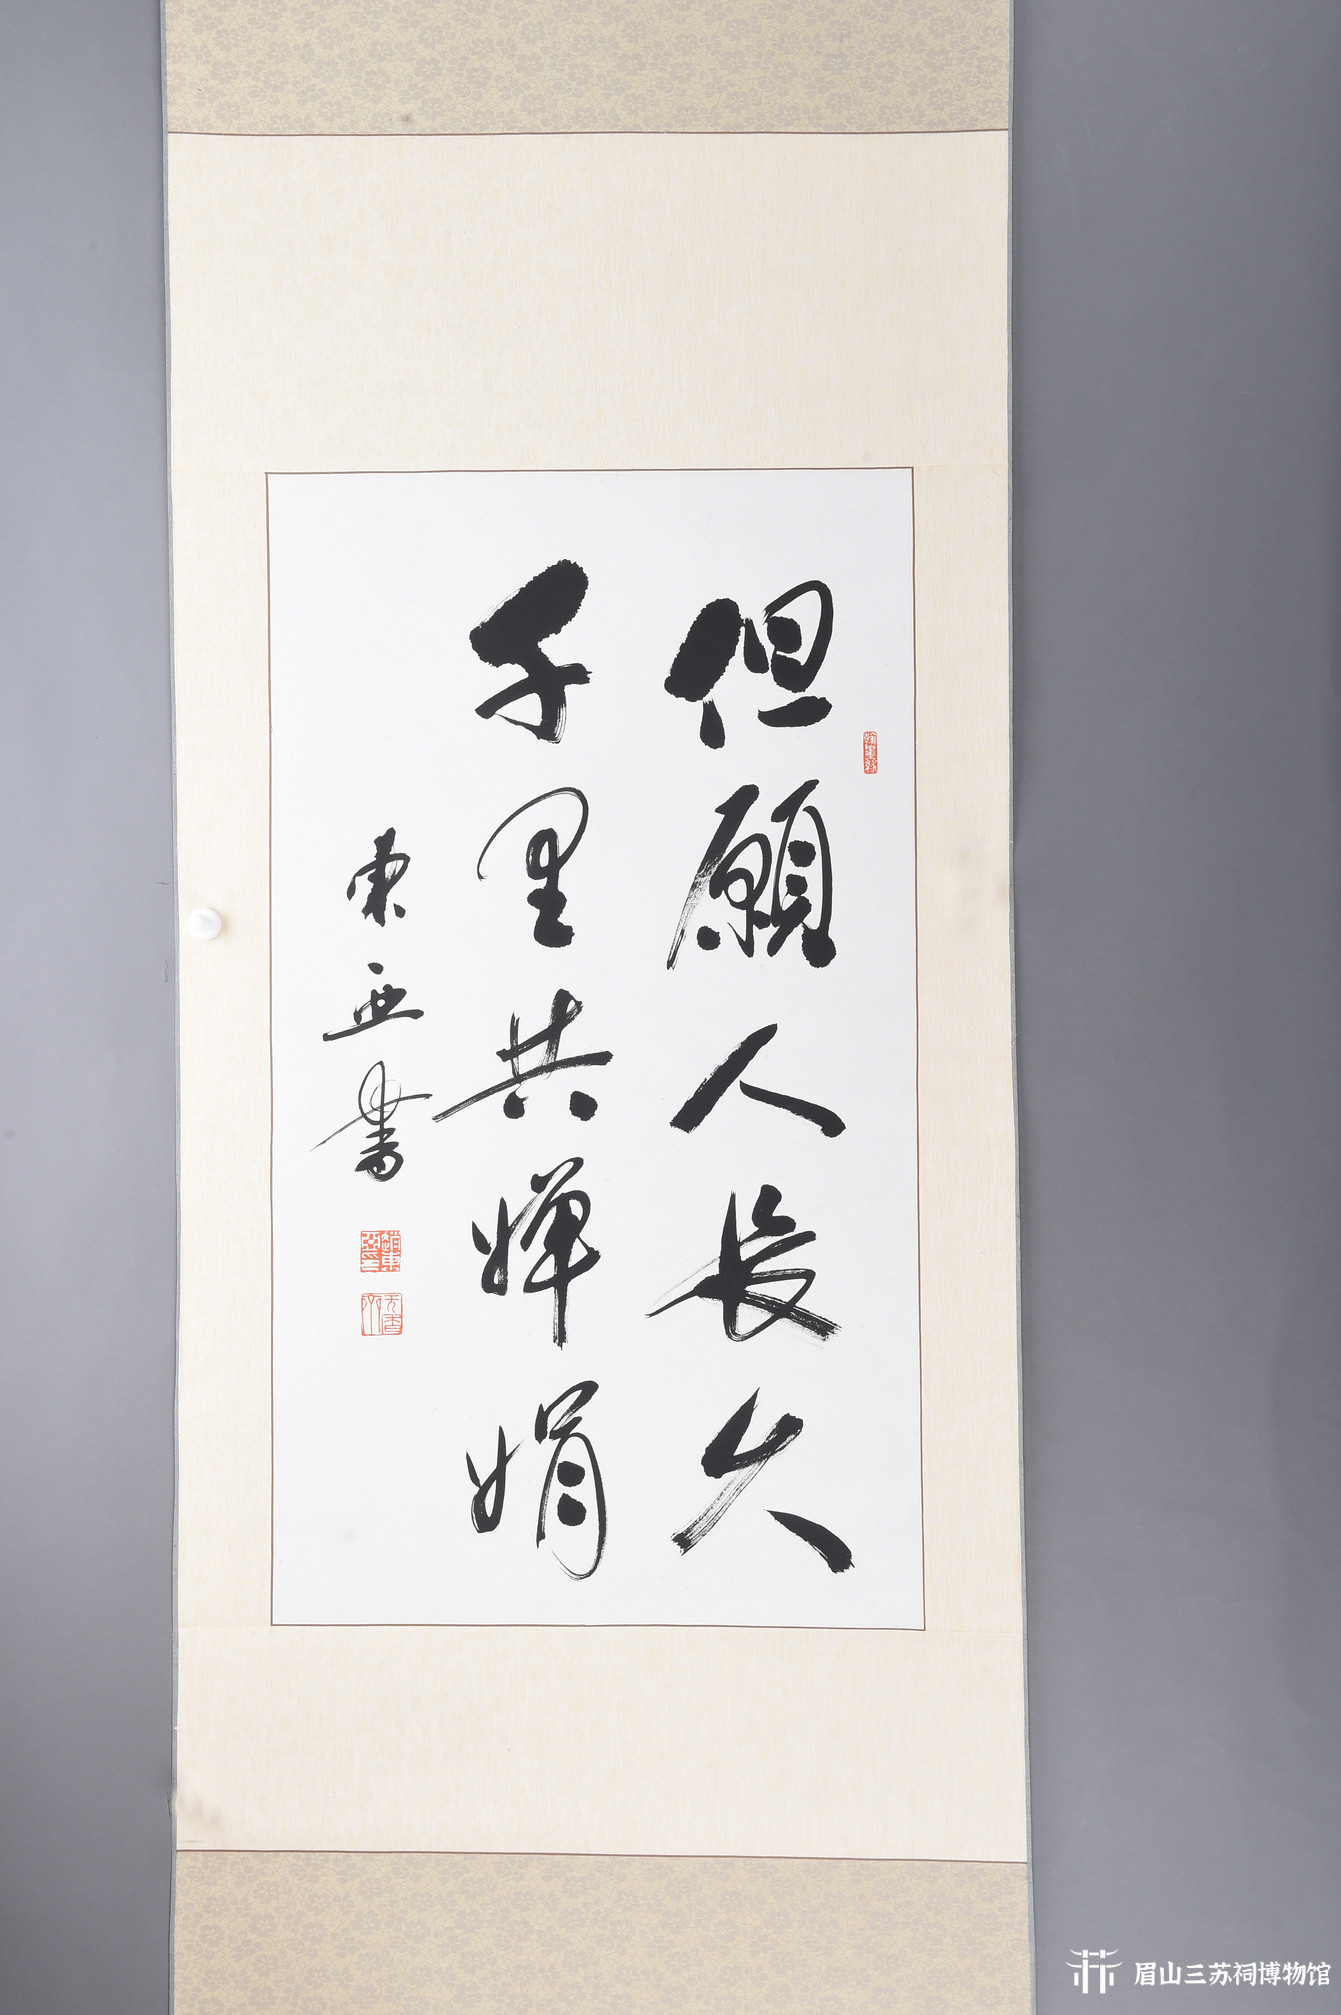 但願人長久
千里共嬋娟
東亚書
趙東亞印
眉山三苏祠博物馆